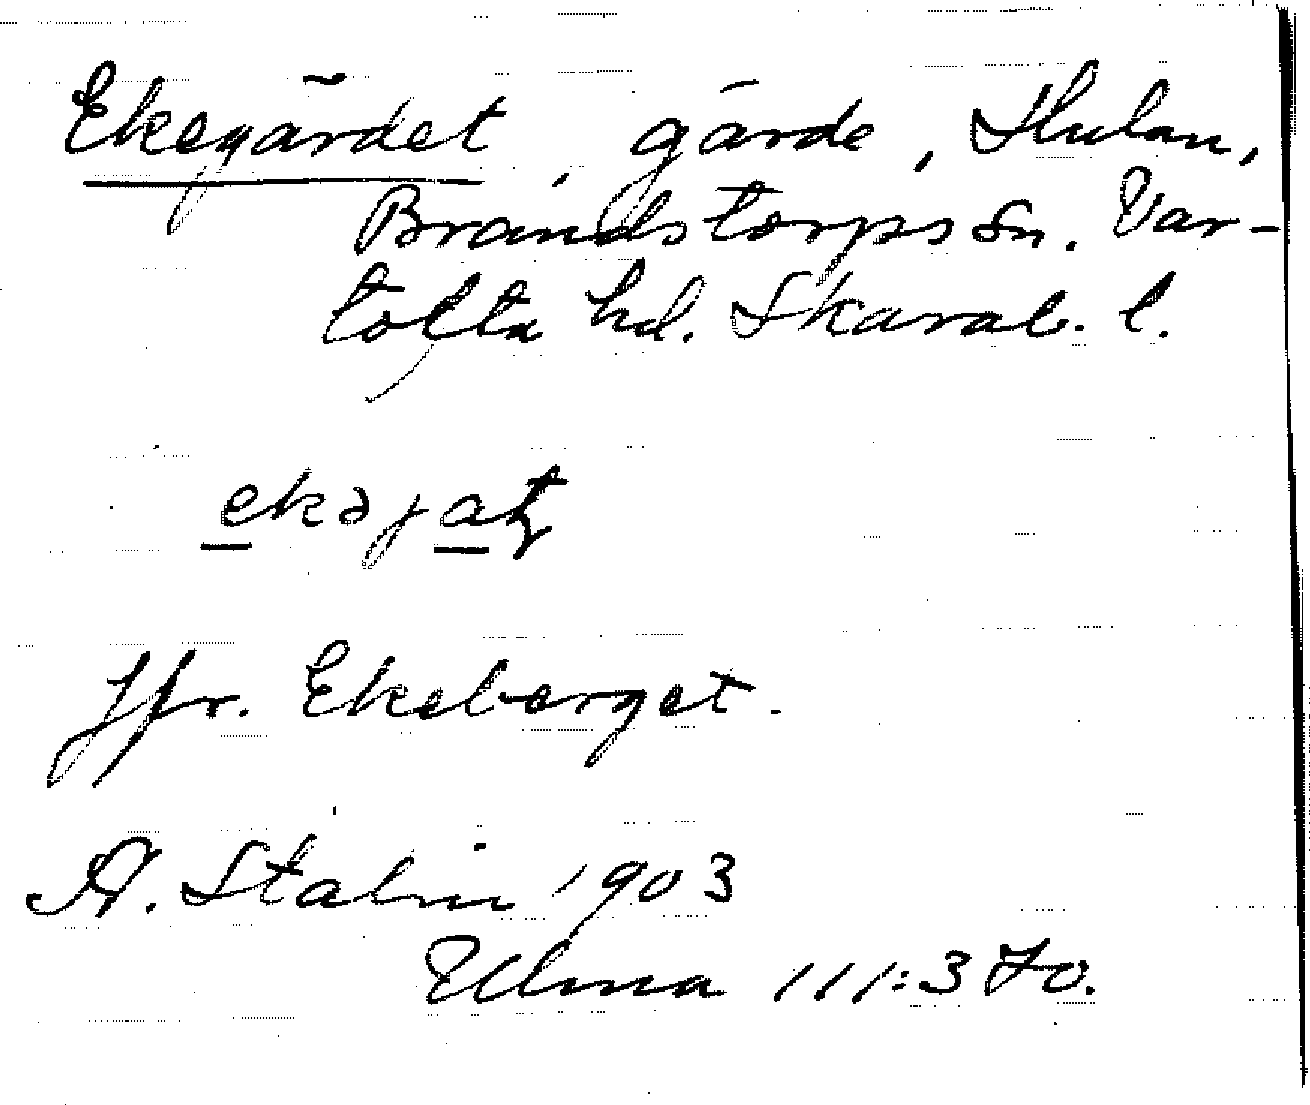 Ekegärdet, gärde, Hulan,
Brandstorps sn. Var-
tofta hd. Skarab. l.
ekəjaʈ
Jfr. Ekeberget.
A. Stalin 1903
Ulma 111:370.